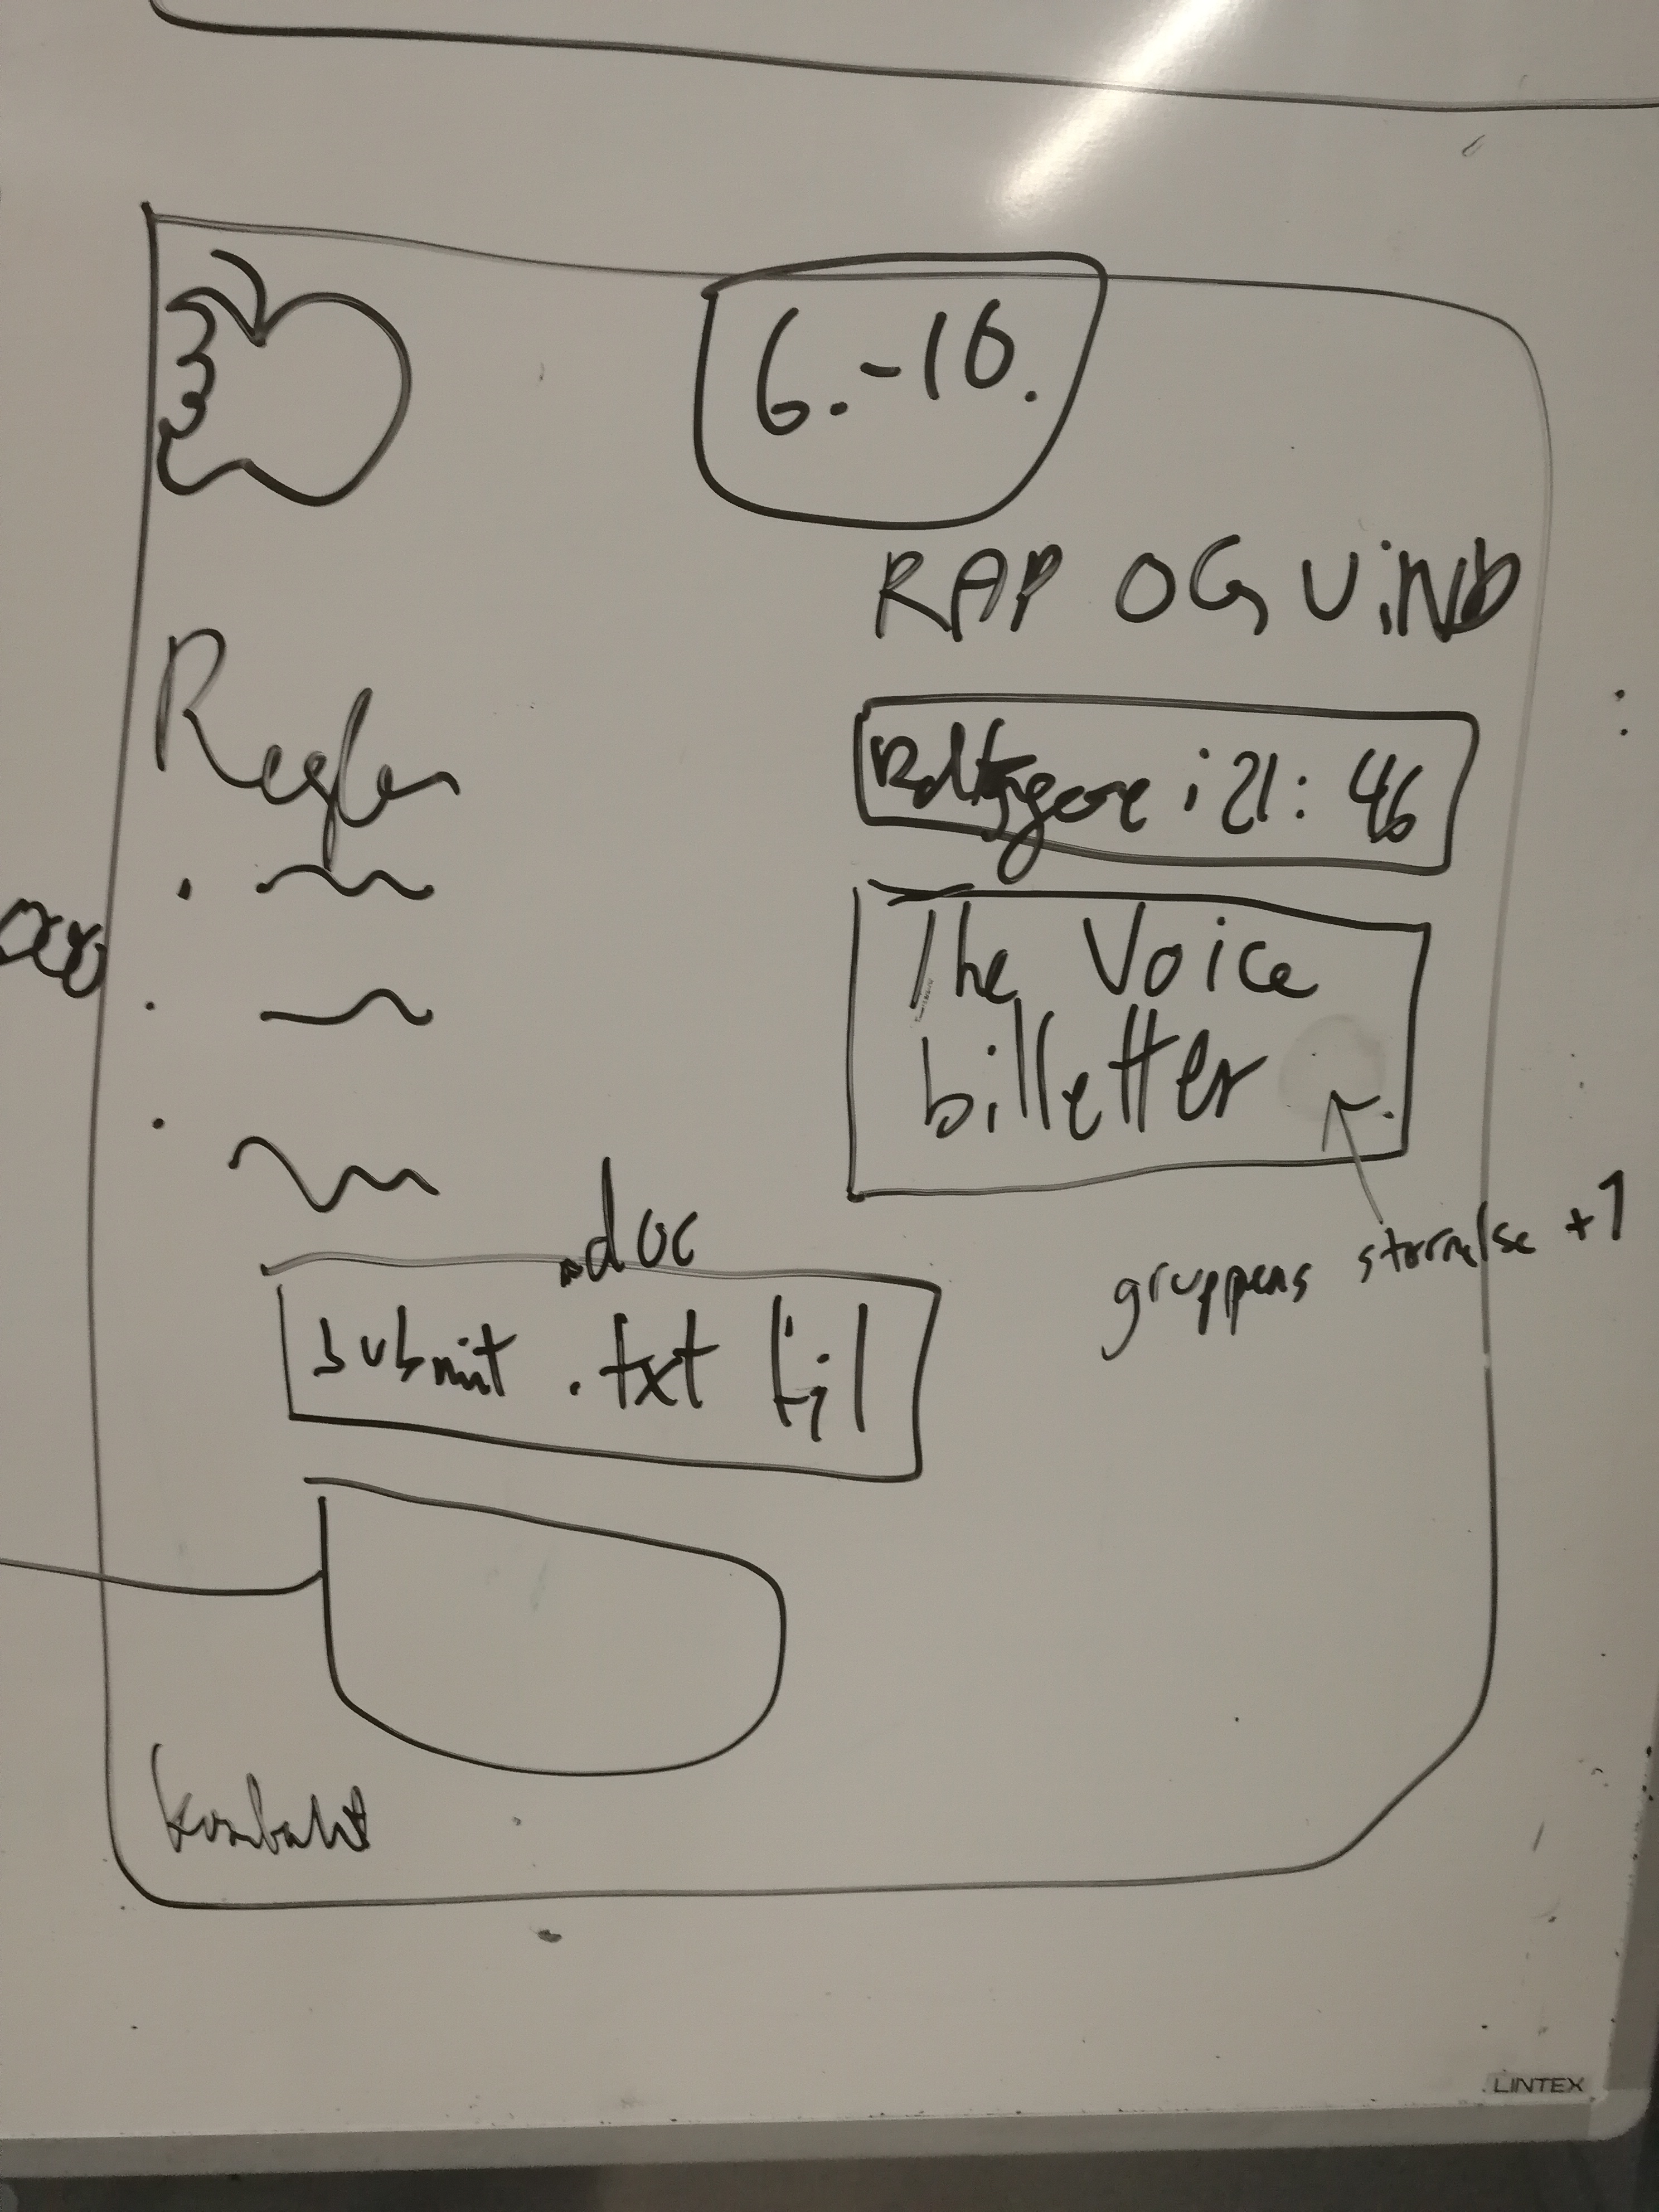 6.-10.
RAP OG VIND
Regler
: 21: 46
The Voice
billetter
gruppens størrelse +1
.doc
submit .txt fil
kontakt
LINTEX